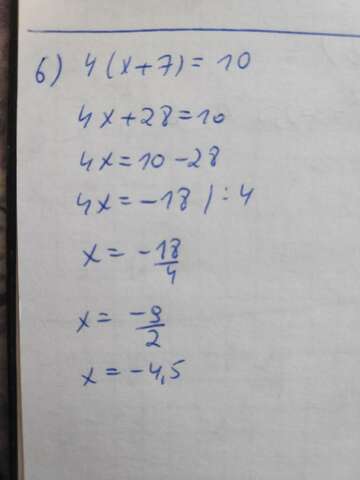 6) 4(x+7)=10
4x+28=10
4x=10-28
4x=-18/:4
x=-18/4
x=-9/2
x=-4,5